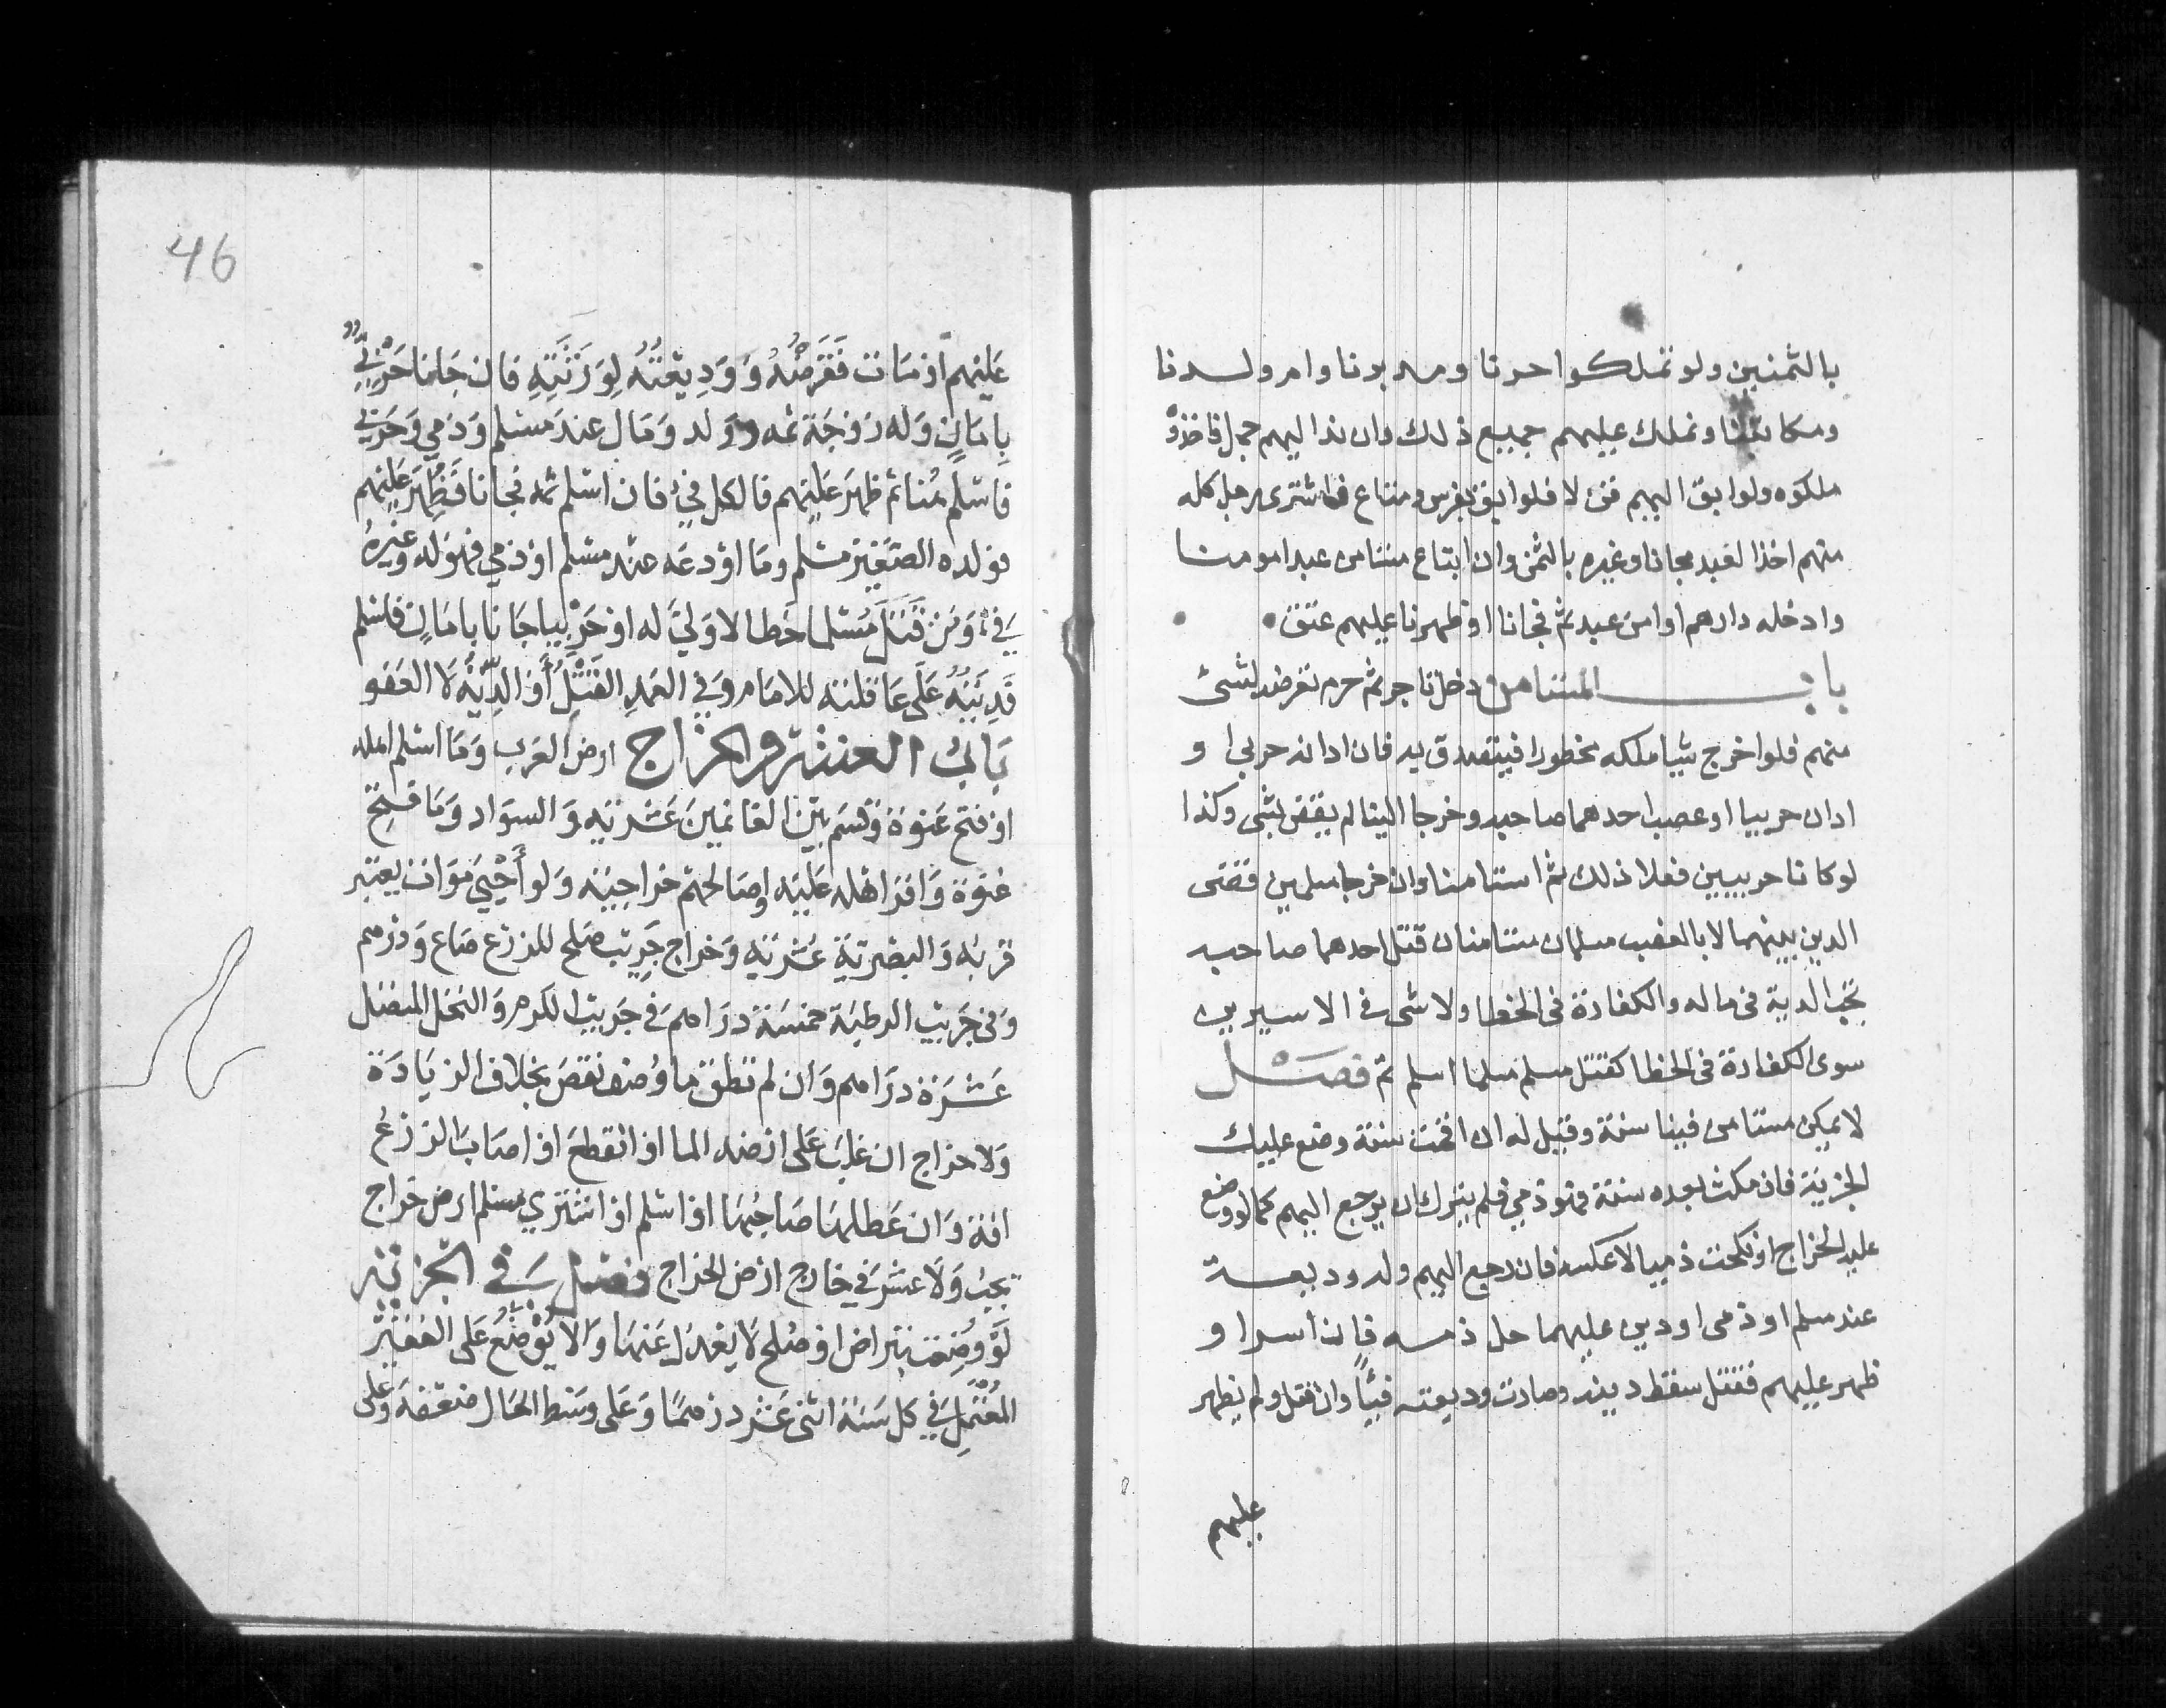 بالثمنين ولو تملكوا حرنا ومدبرنا وام ولدنا
ومكاتبنا ونملك عليهم جميع ذلك وان ند اليهم جمل فاخذوه
ملكوه ولو ابق اليهم قن لا فلو ابق بفرس ومتاع فاشترى رجل كله
منهم اخذ العبد مجانا وغيره بالثمن وان ابتاع مستامن عبدا مومنا
وادخله دارهم او امن عبد ثم فجانا او ظهرنا عليهم عتق
باب المستامن دخل تاجر ثم حرم تعرضه لشئ
منهم فلو اخرج شيا ملكه محظورا فيتصدق به فان ادانه حربي او
ادان حربيا او غصب احدهما صاحبه وخرجا الينا لم يقض بشى وكذا
لو كانا حربيين فعلا ذلك ثم استامنا وان خرجا مسلمين قضى
الدين بينهما لا بالغصب مسلمان مستامنان قتل احدهما صاحبه
تجب الدية فى ماله والكفارة فى الخطا ولا شى فى الاسيرين
سوى الكفارة فى الخطا كقتل مسلم مسلما اسلم ثم فصل
لا يمكن مستامن فينا سنة وقيل له ان اقمت سنة وضع عليك
الجزية فان مكث بعده سنة فهو ذمي فلم يترك ان يرجع اليهم كما لو وضع
عليه الخراج او نكحت ذميا لا عكسه فان رجع اليهم وله وديعة
عند مسلم او ذمى او دين عليهما حل دمه فان أسر او
ظهر عليهم فقتل سقط دينه وصارت وديعته فيئا وان قتل ولم يظهر
عليهم
46
عَليهم او مَات فَقَرضُهُ وَوَدِيعَتُهُ لِوَرَثَتِهِ فان جَانا حَرْبِيٌّ
بِامَانٍ وَله زَوْجَة ثمه وَوَلد وَمَال عندَ مسْلم وَذمي وَحَربي
فاسْلَم هُنا ثم ظهَر عَليهم فالكل فيء فان اسْلم ثمه فجَانا فَظُهِرَ عَليهم
فولده الصَغير مسْلم ومَا اوْدعَه عندَ مسْلم او ذمي فهوَ له وغيره
فيء وَمَن قَتل مُسْلما خَطا لا وَليَّ له او حَرْبيا جَانا بامَانٍ فاسْلم
فَدِيَتُهُ عَلَى عَاقلته للامَام وَفي العَمدِ القَتْلُ أو الدِّيَةُ لَا العَفو
بَابُ العشر والخراج ارض العَرب وَمَا اسْلم اهله
او فتح عَنوَة وَقسَم بَين الغانمِينَ عَشْرية وَالسوَاد وَمَا فُتِحَ
عَنوَة وَاقر اهْله عَليه اوصَالحهمْ خراجيَّة وَلو أُحْيِي مَوَات يعتبر
قربهُ وَالبصْرة عُشْرية وَخراج جَرِيب صَلح للزرْع صَاع وَدرهم
وَفى جَريب الرطبَة خمسَة درَاهم وَفي جَريب الكرم وَالنخل المتصل
عَشَرَة درَاهم وَان لم تطق ما وُضعَ نقصَ بخلاف الزيَادَة
وَلا خراج ان غلبَ عَلى ارْضه الما او انقطعَ او اصَابَ الزرْعُ
افة وَان عَطلهَا صَاحِبُهَا او اسْلم او اشترَي مسْلم ارض خراج
يجبُ وَلَا عشر في خارج ارض الخراج فصل في الجزية
لَوْ وُضِعَت بتراض او صُلح لا يعدل عَنهَا وَالا يُوْضَعُ عَلى الفَقيْر
المُعْتَمِلِ في كل سَنة اثنى عَشر درهَمًا وَعَلى وَسَط الحَال ضعْفهُ وَعَلى